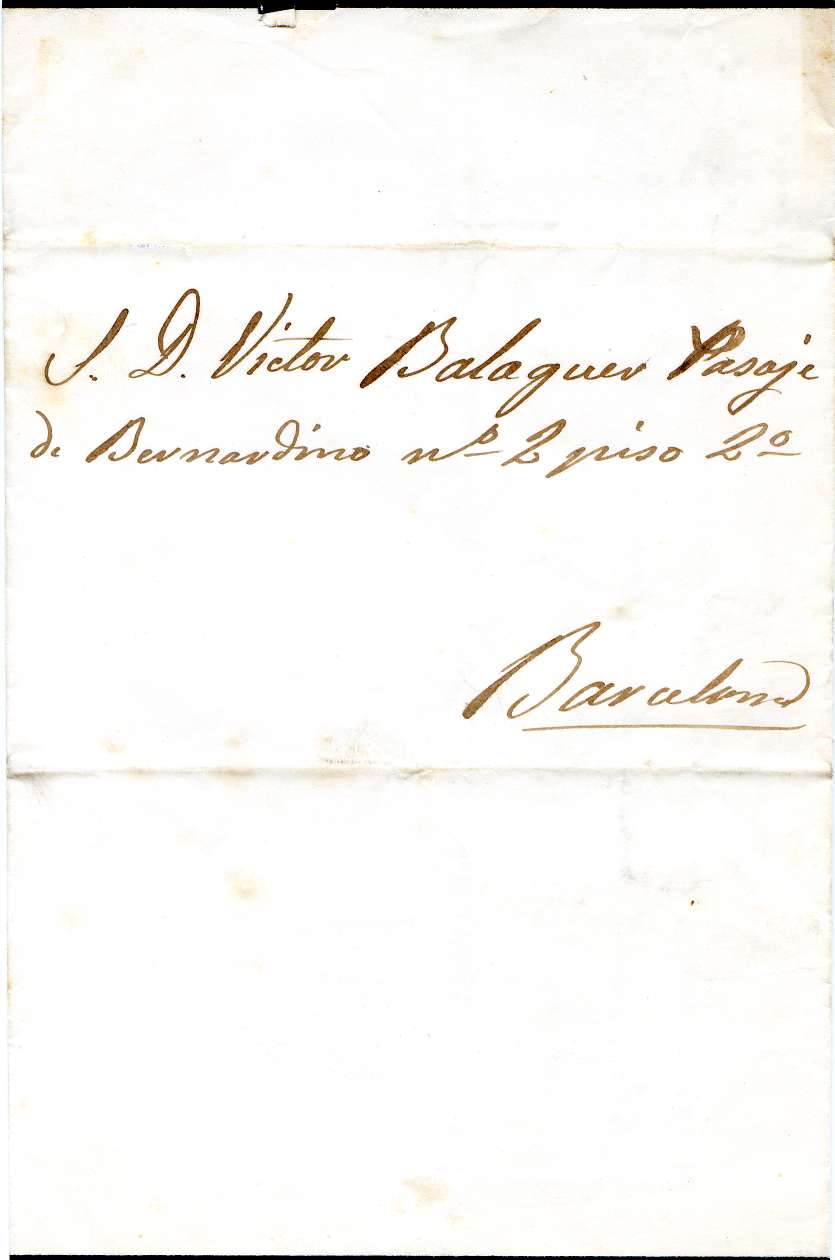 S. D. Victor Balaguer Pasaje
de Bernardino nº 2 piso 2º
Barcelona